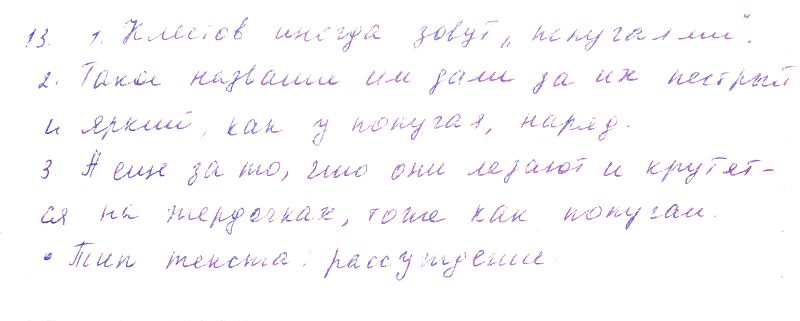 13. 1. Клестов иногда зовут „попугаями".
2. Такое название им дали за их пестрый
и яркий, как у попугая, наряд.
3 А еще за то, что они лезают и крутят-
ся на жердочках, тоже как попугаи.
• Тип текста: рассуждение.